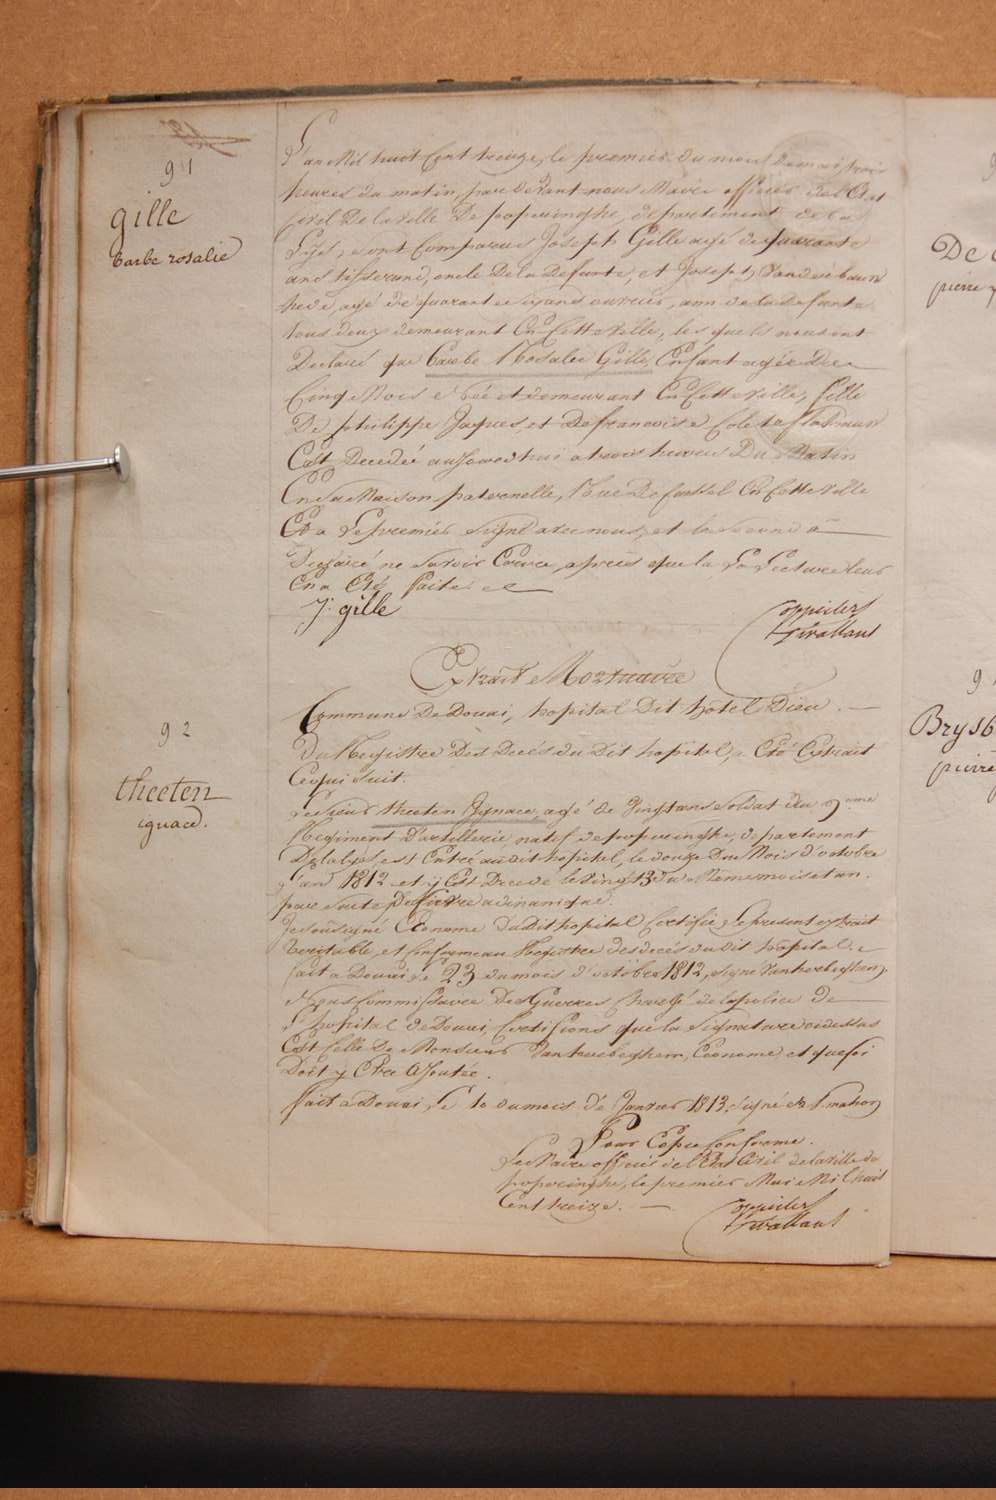 91
gille
barbe rosalie
L'an Mil huit Cent treize, le premier du mois de mai, trois
heures du matin, par devant nous Maire officier de l'Etat
Civil De la ville De poperinghe, département de la
Lys, sont Comparus Joseph Gille agé de quarante
ans tisserand, oncle De la Defunte, et Joseph
agé de quarante ans ouvrier, ami de la defunte
tous deux demeurant En Cette ville, les quels nous ont
Declaré que Barbe Rosalie Gille, Enfant agée De
Cinq Mois née et demeurant En Cette ville, fille
De philippe Jacques, et De francoise Colette
Est Decedée aujourd'hui a trois heures Du Matin
En sa Maison paternelle, Rue De En Cette ville
Et a Le premier Signé avec nous, et le second a
Declaré ne Savoir Ecrire, après que la Lecture leur
En a Eté faite.
J. gille
Extrait Mortuaire
92
theeten
ignace.
Commune De Douai, hopital Dit hotel Dieu. —
Du Registre Des Decés du Dit hopital, a Eté Extrait
Ce qui suit.
Le Sieur theeten Ignace, agé de Vingt ans Soldat du 9eme
Regiment D'artillerie, natif de poperinghe, departement
De la lys, est Entré au dit hopital, le douze Du Mois d'octobre
l'an 1812 et y Est Decedé le Vingt 3 du Meme mois et an.
par suite De fievre adinamique.
Je soussigné Econome du Dit hopital Certifie, le present extrait
Veritable, et Conforme au Registre des decés du dit hopital.
fait a Douai, le 23 du mois d'octobre 1812, signé Vankerbeghem
Nous Commissaire Des Guerres Chargé de la police de
L'hopital de Douai, Certifions que la Signature ci dessus
Est Celle De Monsieur Vankerbeghem, Econome et que foi
Doit y Etre Ajoutée.
fait a Douai, le 10 du mois de Janvier 1813, signé
Pour Copie Conforme.
Le Maire officier de l'Etat Civil de la ville de
poperinghe, le premier Mai Mil huit
Cent treize. —
De
pierre
Brysb
pierre